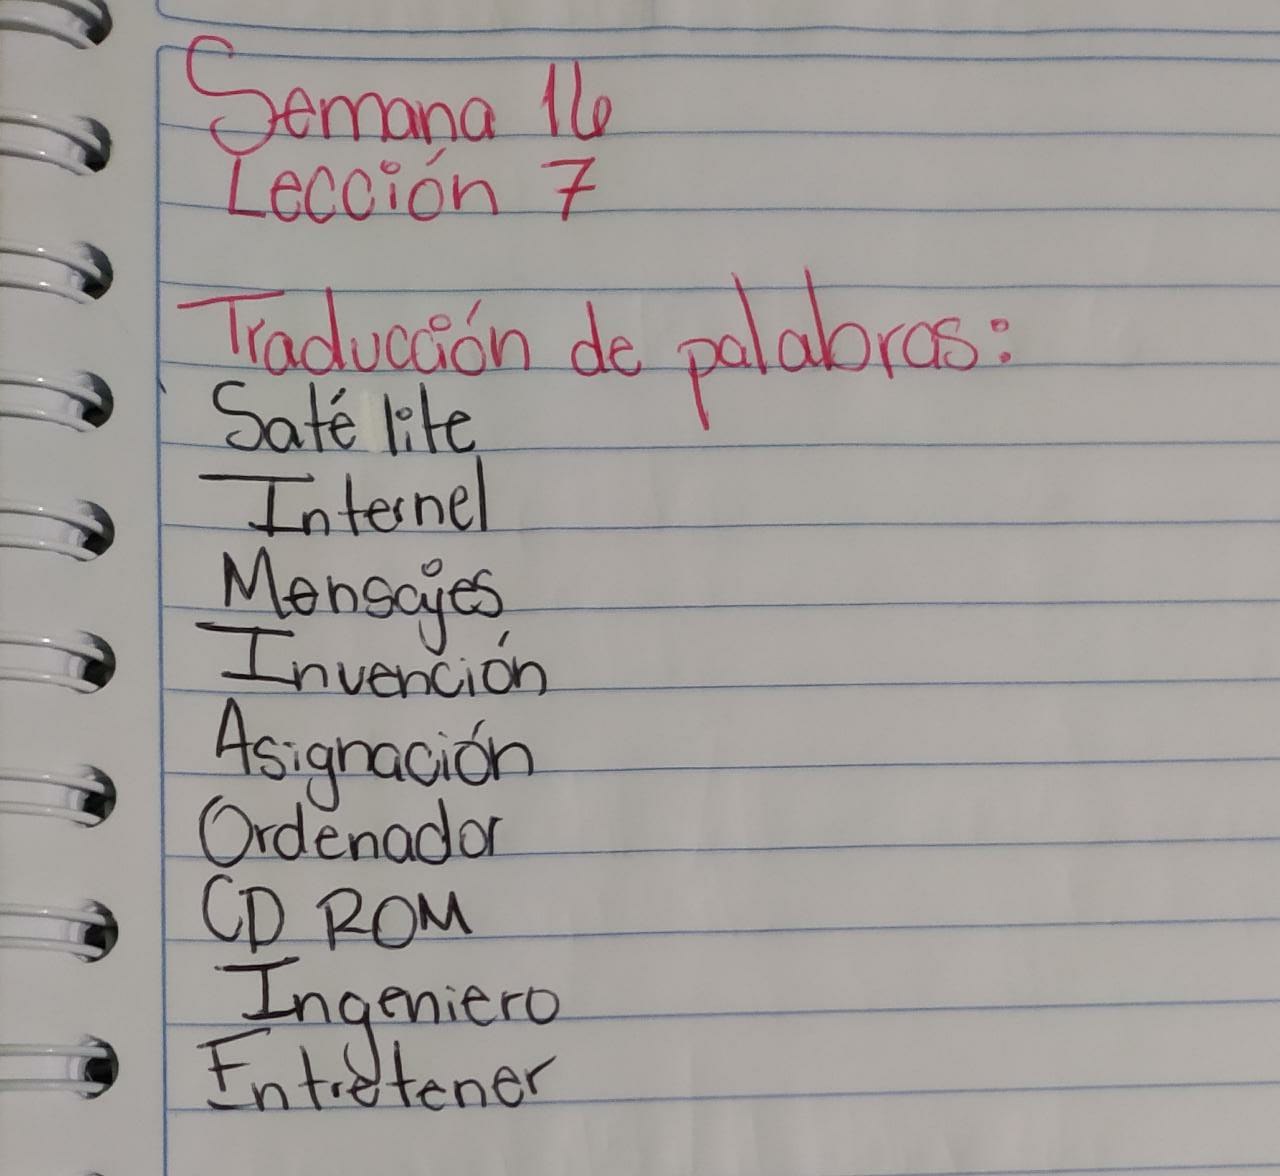 Semana 16
Lección 7
Traducción de palabras:
Satélite
Internet
Mensajes
Invención
Asignación
Ordenador
CD ROM
Ingeniero
Entretener